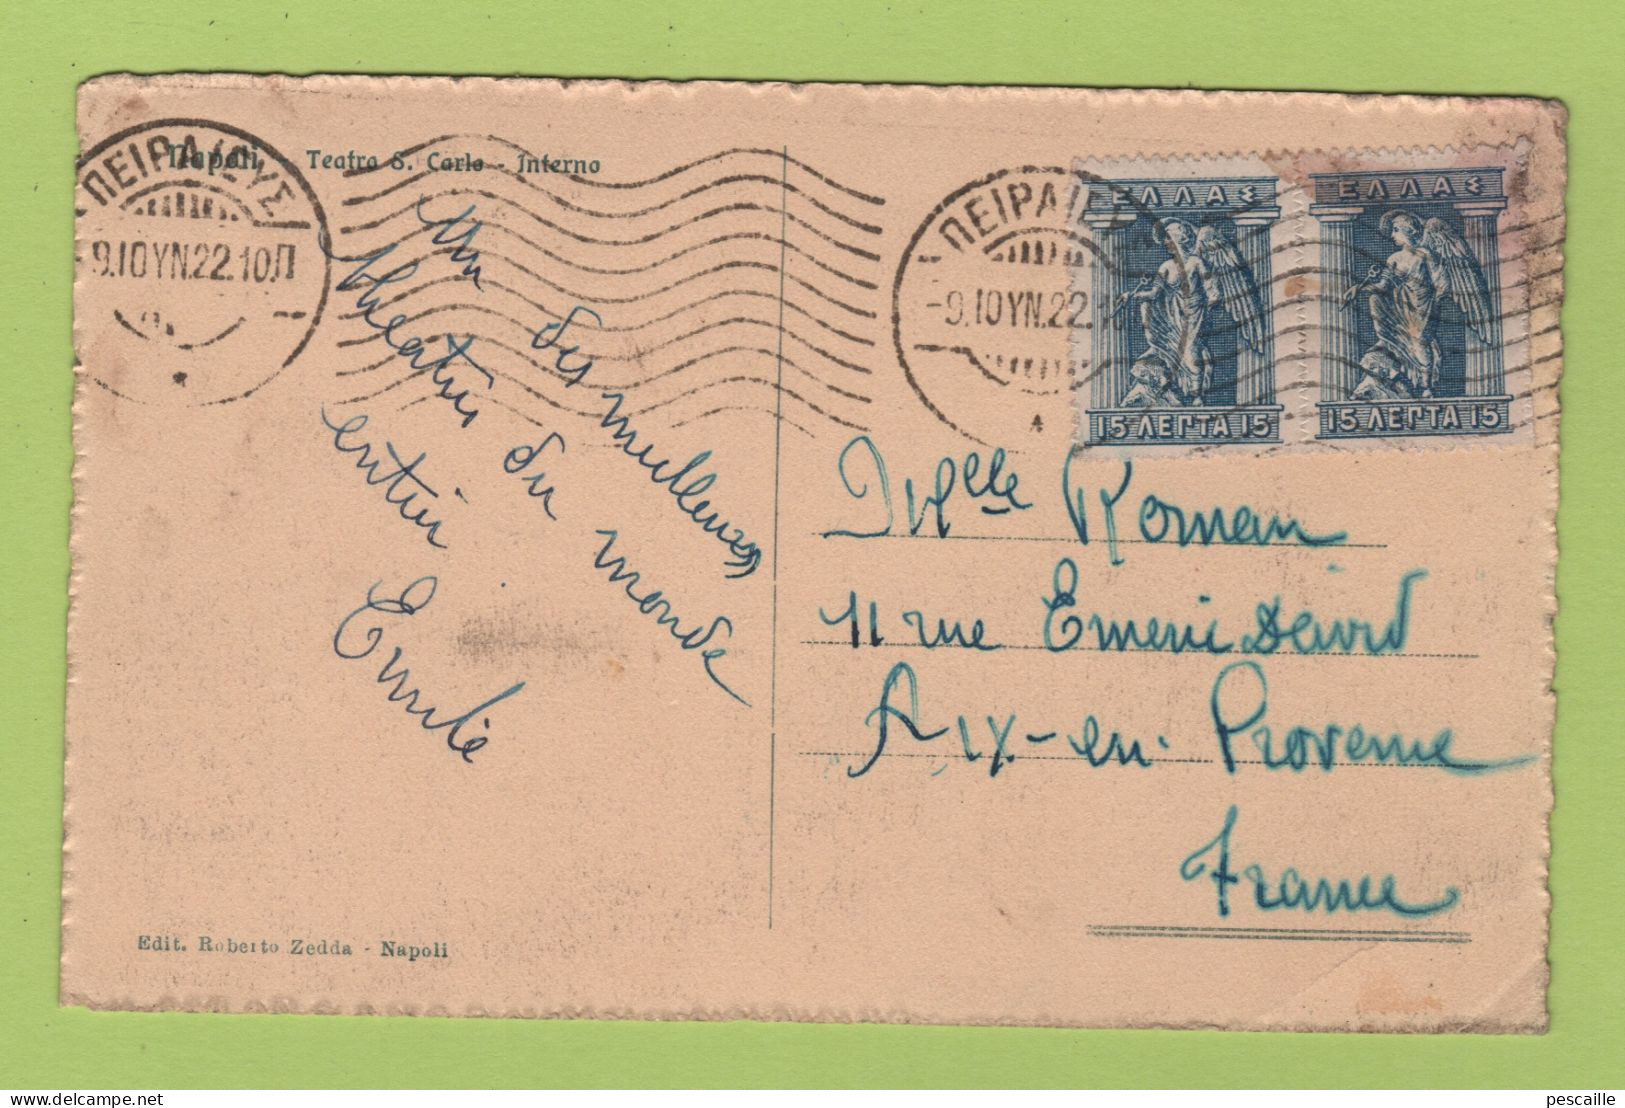 Napoli - Teatro S. Carlo - Interno
ΠΕΙΡΑΙΩΣ
9.ΙΟΥΝ.22.10.Π
ΠΕΙΡΑΙΩΣ
-9.ΙΟΥΝ.22.10
ΕΛΛΑΣ
15 ΛΕΠΤΑ 15
ΕΛΛΑΣ
15 ΛΕΠΤΑ 15
Un des meilleurs
theatres du monde
entier
Emilie
Mlle Roman
11 rue Emeric David
Aix-en-Provence
France
Edit. Roberto Zedda - Napoli
pescaille